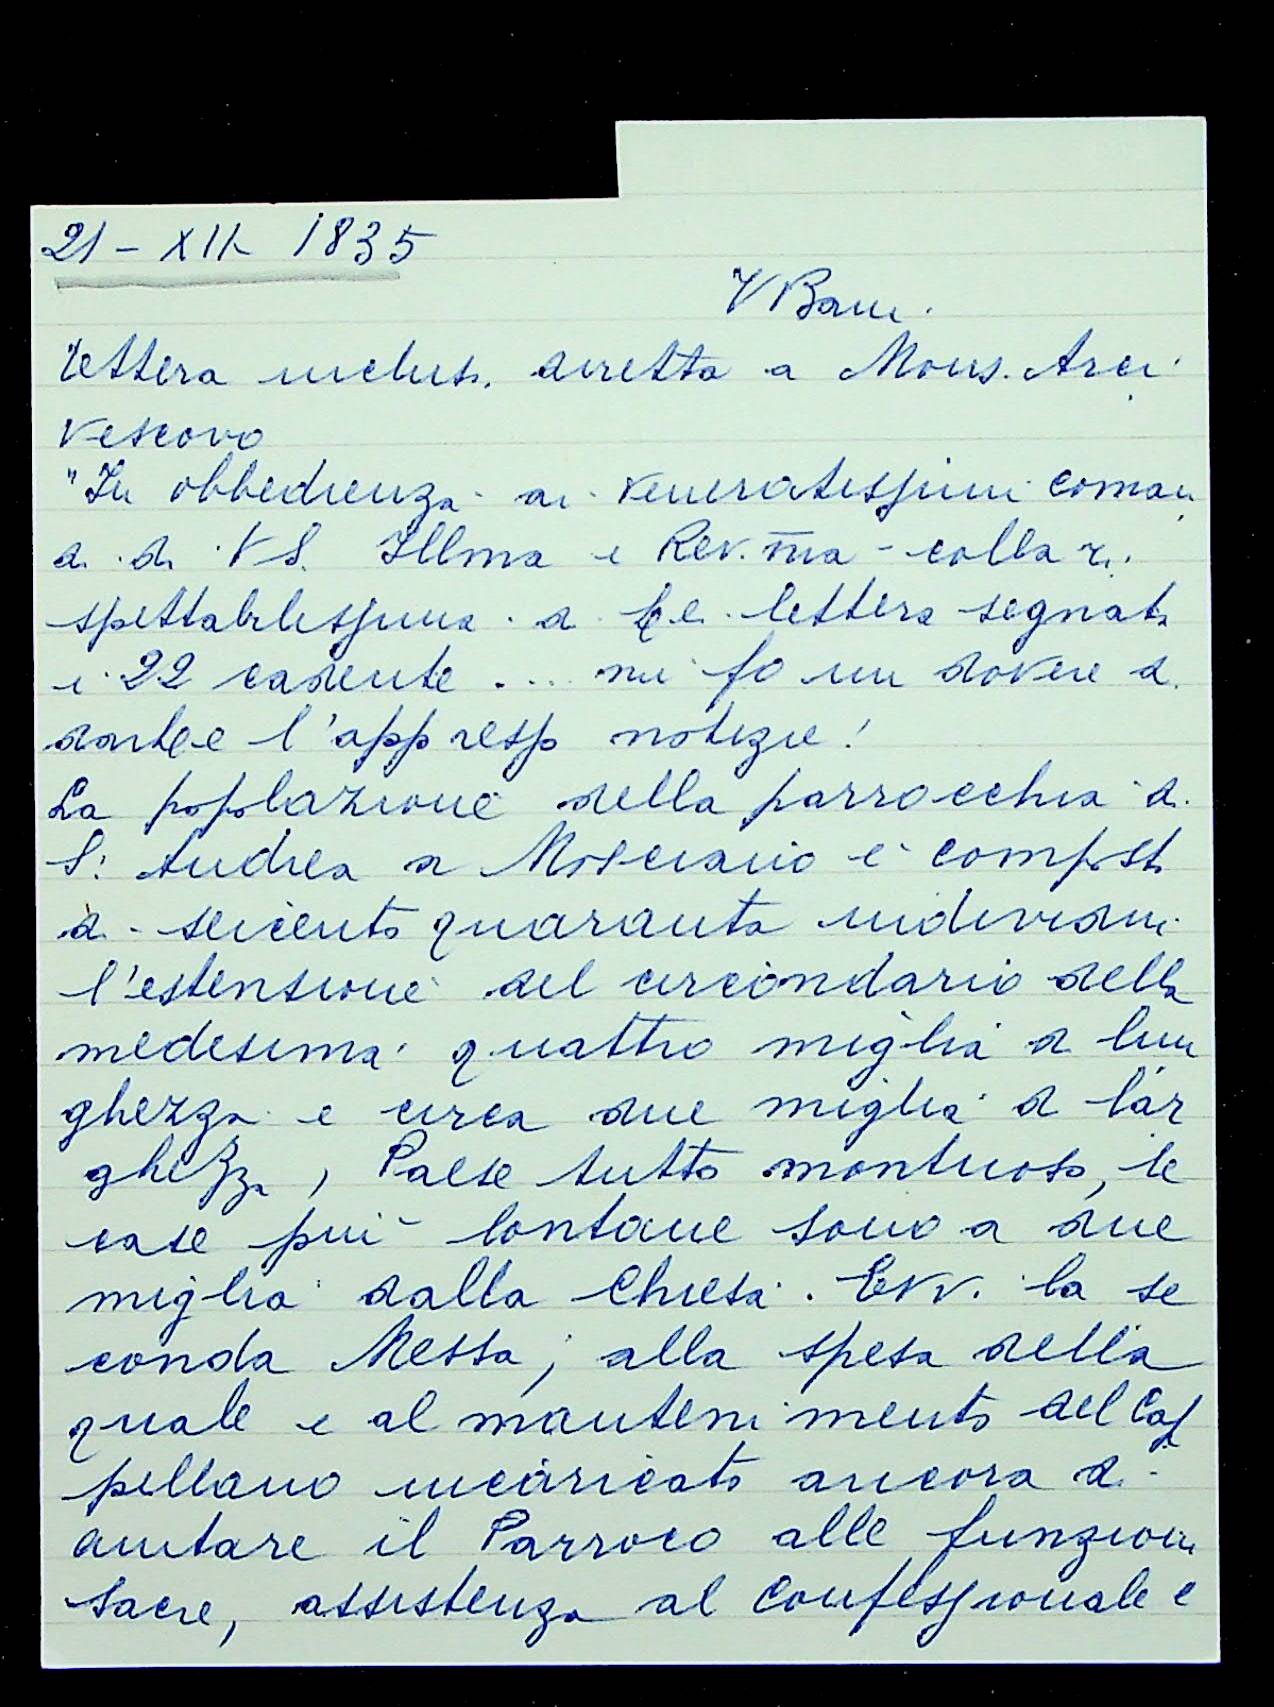 21 - XII - 1835
V Bau.
lettera inclus. diretta a Mons. Arci
vescovo
"In obbedienza ai veneratissimi coman
di di VS. Illma e Rev.ma - colla ri
spettabilissima di lei lettera segnata
i 22 cadente .... mi fo un dovere di
darlee l'app resp notizie!
La popolazione della parrocchia di
S. Andrea a Mosciano è composta
di seicento quaranta individui
l'estensione del circondario della
medesima quattro miglia di lun
ghezza e circa due miglia di lar
ghezza, Paese tutto montuoso, le
case più lontane sono a due
miglia dalla Chiesa. Evvi la se
conda Messa, alla spesa della
quale e al mantenimento del Cap
pellano incaricato ancora di
aiutare il Parroco alle funzioni
sacre, assistenza al Confessionale e